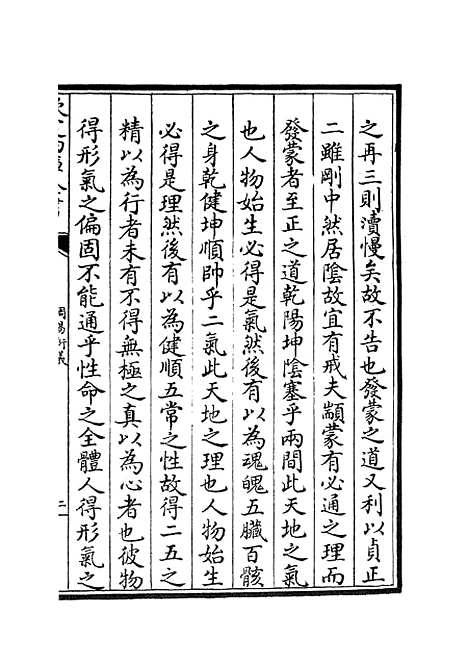 之再三則瀆慢矣故不告也發蒙之道又利以貞正
二雖剛中然居陰故宜有戒夫顓蒙有必通之理而
發蒙者至正之道乾陽坤陰塞乎兩間此天地之氣
也人物始生必得是氣然後有以為魂魄五臟百骸
之身乾健坤順帥乎二氣此天地之理也人物始生
必得是理然後有以為健順五常之性故得二五之
精以為行者未有不得無極之真以為心者也彼物
得形氣之偏固不能通乎性命之全體人得形氣之
欽定四庫全書
周易衍義